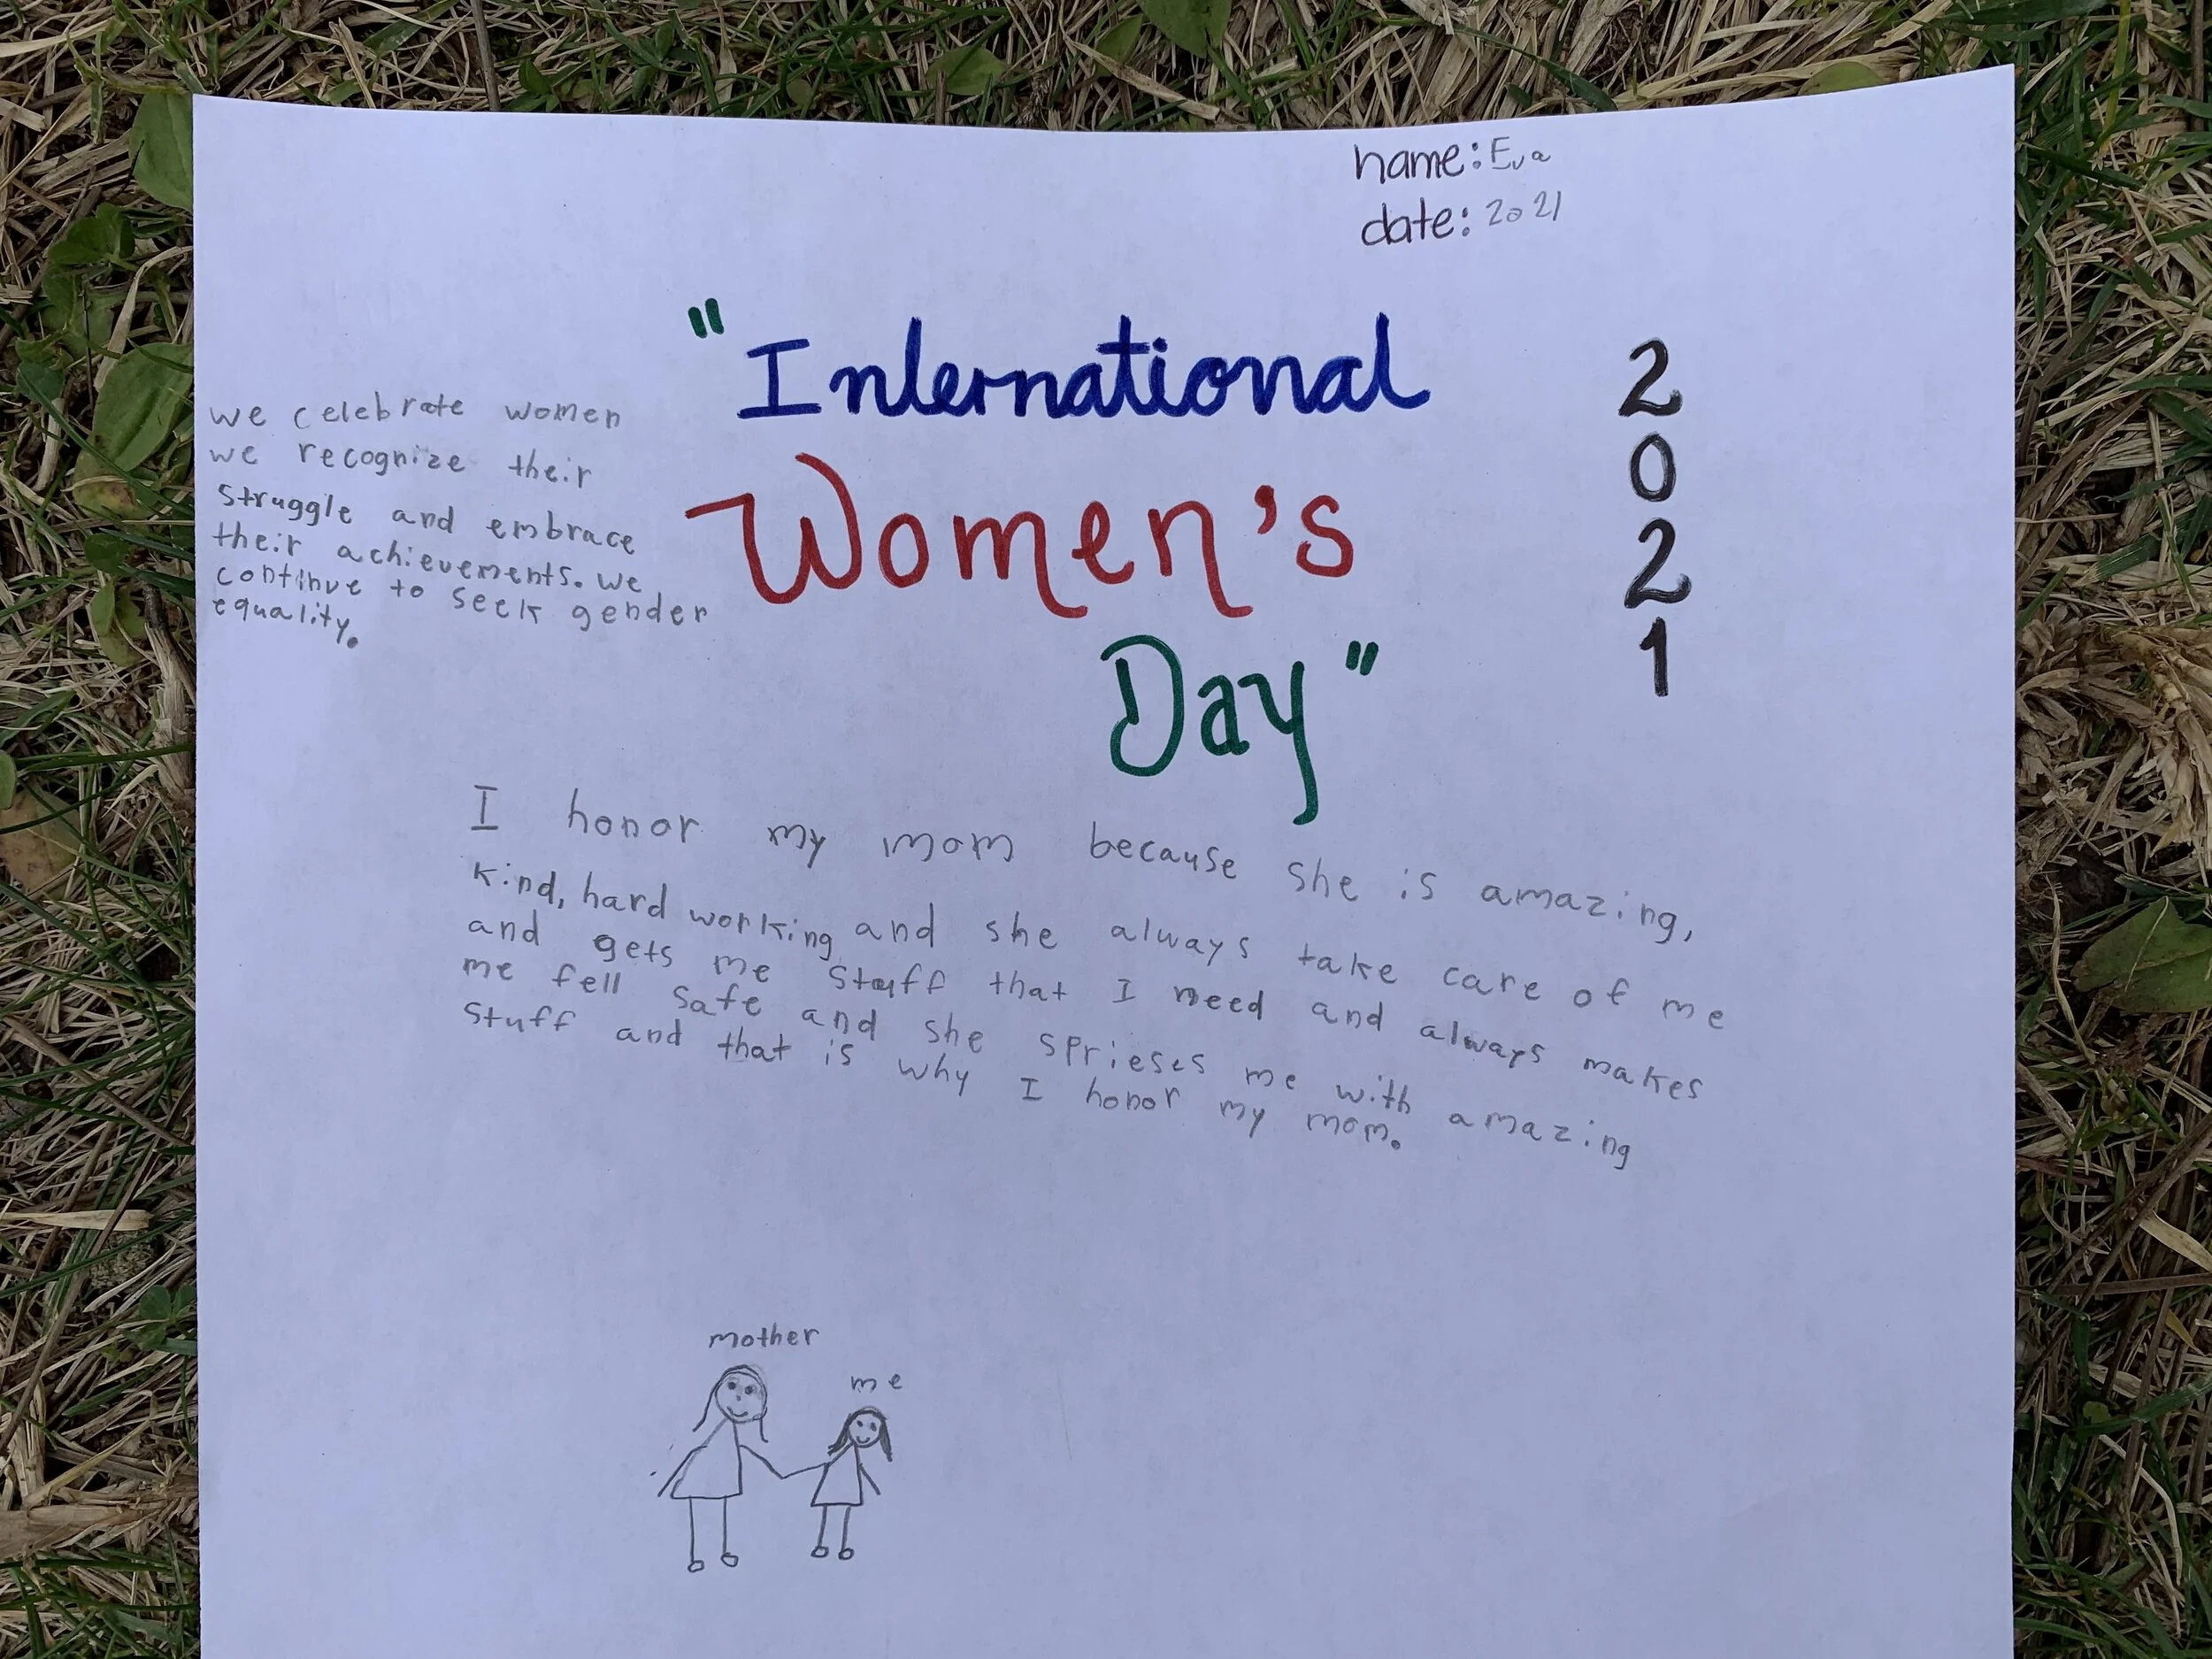 name: Eva
date: 2021
"International
Women's
Day"
2
0
2
1
we celebrate women
we recognize their
struggle and embrace
their achievements. we
continue to seek gender
equality.
I honor my mom because she is amazing,
kind, hard working and she always take care of me
and gets me stuff that I need and always makes
me fell safe and she sprieses me with amazing
stuff and that is why I honor my mom.
mother
me